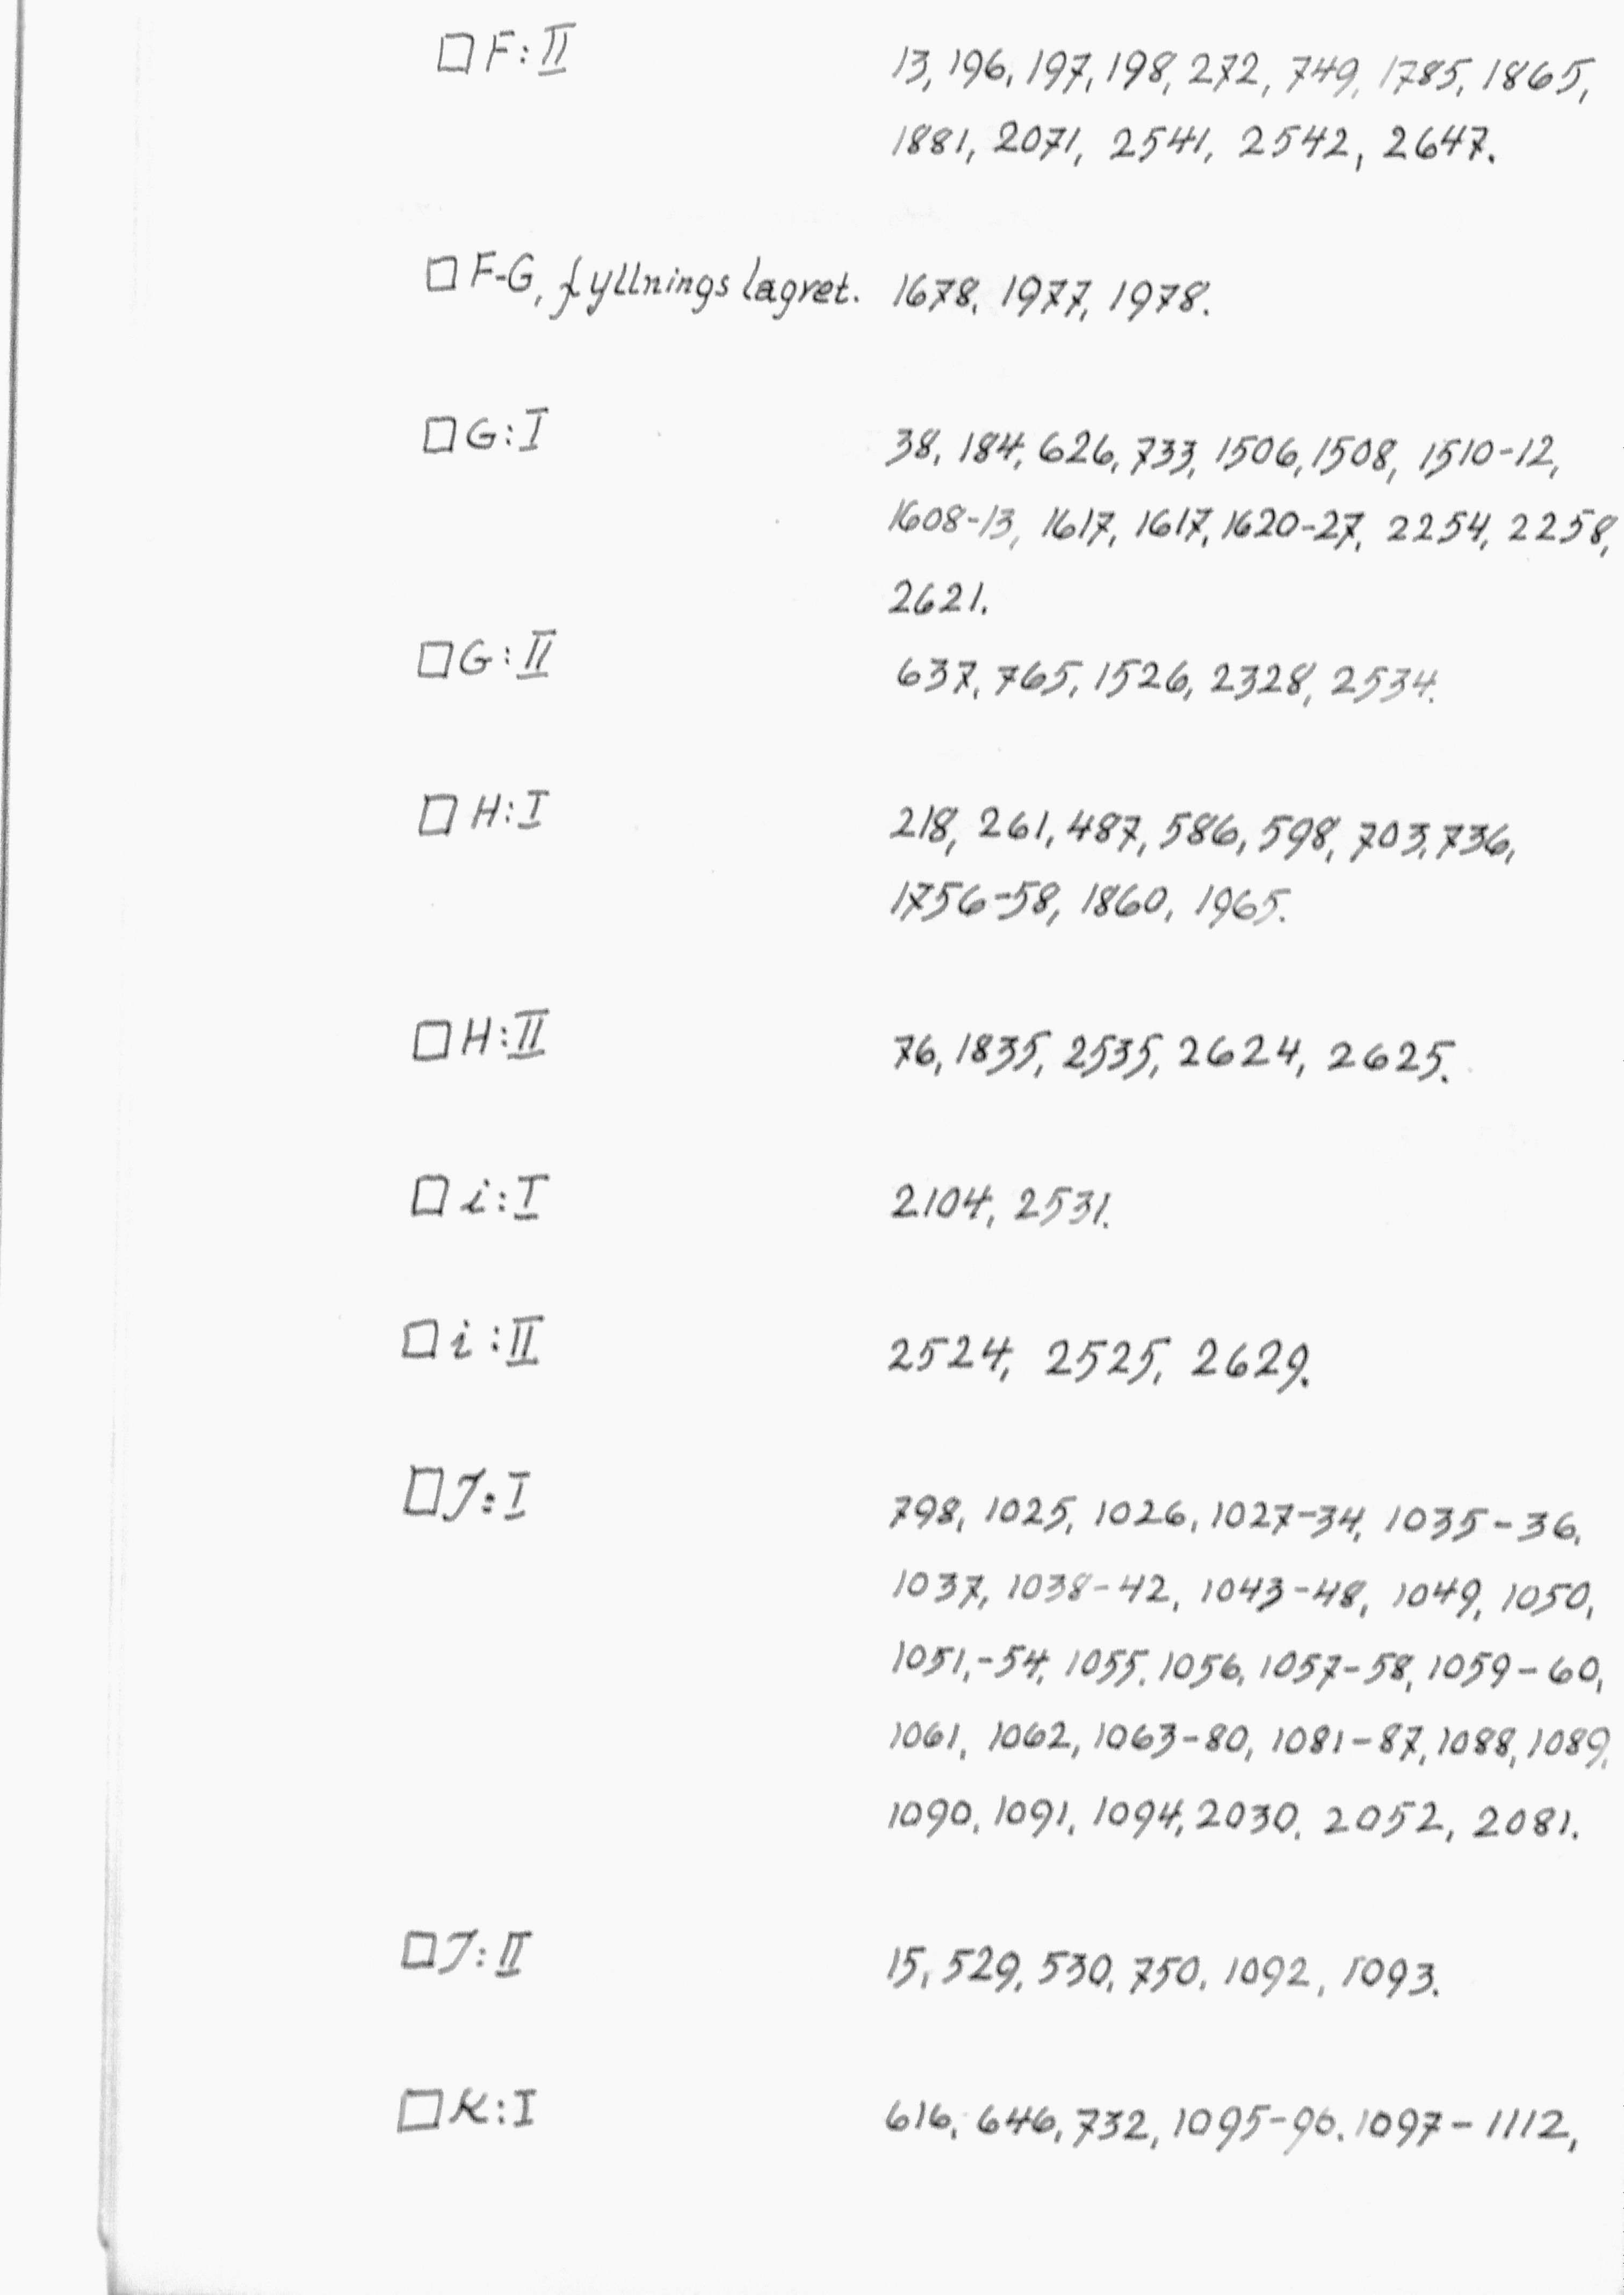 □ F:II 13, 196, 197, 198, 272, 749, 1785, 1865,
1881, 2071, 2541, 2542, 2647.
□ F-G, fyllningslagret. 1678, 1977, 1978.
□ G:I 38, 184, 626, 733, 1506, 1508, 1510-12,
1608-13, 1617, 1617, 1620-27, 2254, 2258,
2621.
□ G:II 637, 765, 1526, 2328, 2534.
□ H:I 218, 261, 487, 586, 598, 703, 736,
1756-58, 1860, 1965.
□ H:II 76, 1835, 2535, 2624, 2625.
□ i:I 2104, 2531.
□ i:II 2524, 2525, 2629.
□ J:I 798, 1025, 1026, 1027-34, 1035-36,
1037, 1038-42, 1043-48, 1049, 1050,
1051,-54, 1055, 1056, 1057-58, 1059-60,
1061, 1062, 1063-80, 1081-87, 1088, 1089,
1090, 1091, 1094, 2030, 2052, 2081.
□ J:II 15, 529, 530, 750, 1092, 1093.
□ K:I 616, 646, 732, 1095-96. 1097-1112,